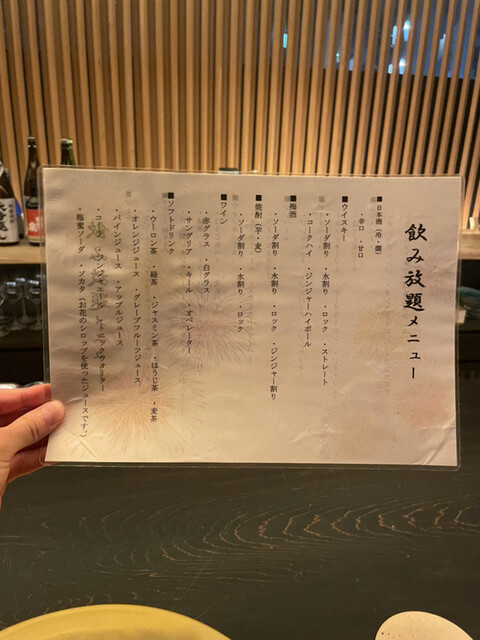 飲み放題メニュー
■日本酒（冷・燗）
・辛口 ・甘口
■ウイスキー
・ソーダ割り ・水割り ・ロック ・ストレート
・コークハイ ・ジンジャーハイボール
■梅酒
・ソーダ割り ・水割り ・ロック ・ジンジャー割り
■焼酎（芋・麦）
・ソーダ割り ・水割り ・ロック
■ワイン
・赤グラス ・白グラス
・サングリア ・キール ・オペレーター
■ソフトドリンク
・ウーロン茶 ・緑茶 ・ジャスミン茶 ・ほうじ茶 ・麦茶
・オレンジジュース ・グレープフルーツジュース
・パインジュース ・アップルジュース
・コーラ ・ジンジャエール ・トニックウォーター
・梅蜜ソーダ ・ソカタ（お花のシロップを使ったジュースです。）